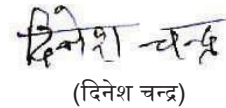 दिनेश चन्द्र
(दिनेश चन्द्र)